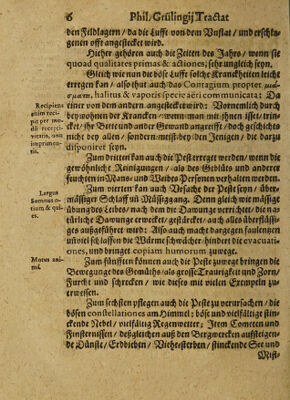 6 Phil. Grülingij Tractat
den Feldlagern / da die Lufft von dem Vnflat / vnd erschla-
genen offt angestecket wird.
Hieher gehören auch die Zeiten des Jahrs / wenn sie
quoad qualitates primas & actiones, sehr ungleich seyn.
Gleich wie nun die böse Lufft solche Kranckheiten leicht
erregen kan / also thut auch das Contagium propter
halitus & vapores specie aëri communicatas Da
einer von dem andern angestecket wird: Vornemlich durch
beywohnen der Krancken / wenn man mit ihnen isset / trinc-
ket / ihr Bette und ander Gewand angreifft / doch geschichts
nicht bey allen / sondern meist bey den Jenigen / die darzu
disponiret seyn.
Zum dritten kan auch die Pest erreget werden / wenn die
gewöhnliche Reinigungen / als des Geblüts und anderer
feuchten in Mans- und Weibes Personen verhalten werden.
Zum vierten kan auch Vrsache der Peste seyn / über-
mässiger Schlaff vñ Müssiggang. Denn gleich wie mässige
übung des Leibes / nach dem die Dawung verrichtet / die na-
türliche Dawung erwecket / gestärcket / auch alles überflüssi-
ges außgeführet wird: Also auch macht dargegen faulentzen
uñ viel schlaffen die Wärme schwächer / hindert die evacuati-
ones, und bringet copiam humorum zuwege.
Zum fünfften können auch die Peste zu wege bringen die
Bewegunge des Gemüths / als grosse Traurigkeit und Zorn /
Furcht und schrecken / wie dieses mit vielen Exempeln zu er-
weisen.
Zum sechsten pflegen auch die Peste zu verursachen / die
bösen constellationes am Himmel: böse und vielfältige stin-
ckende Nebel / vielfältig Regenwetter; Item Cometen und
Finsternissen / desgleichen auß den Bergwercken auffsteigen-
de Dünste / Erdbieben / Viehesterben / stinckende See und
Mist-
Recipiens
enim reci-
pit per mo-
dũ recepti-
vitatis, non
imprimen-
tis.
Largus
Somnus o-
tium & quies.
Motus ani-
mi.